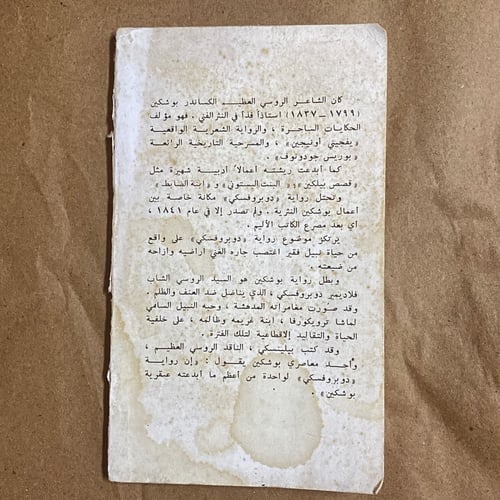 كان الشاعر الروسي العظيم الكساندر بوشكين
(١٧٩٩ – ١٨٣٧) استاذاً فذاً في النثر الفني . فهو مؤلف
الحكايات الساحرة ، والرواية الشعرية الواقعية
«يفجيني أونيجين» ، والمسرحية التاريخية الرائعة
«بوريس جودونوف» .
كما أبدعت ريشته أعمالاً أدبية شهيرة مثل
«قصص بيلكين» و« البنت البستوني» و «ابنة الضابط»
وتحتل رواية «دوبروفسكي» مكانة خاصة بين
أعمال بوشكين النثرية . ولم تصدر إلا في عام ١٨٤١ ،
أي بعد مصرع الكاتب الأليم .
يرتكز موضوع رواية «دوبروفسكي» على واقع
من حياة نبيل فقير اغتصب جاره الغني أراضيه وازاحه
من ضيعته .
وبطل رواية بوشكين هو السيد الروسي الشاب
فلاديمير دوبروفسكي ، الذي يناضل ضد العنف والظلم .
وقد صورت مغامراته المدهشة ، وحبه النبيل السامي
لماشا ترويكورفا ، ابنة غريمه وظالمه ، على خلفية
الحياة والتقاليد الإقطاعية لتلك الفترة .
وقد كتب بيلينسكي ، الناقد الروسي العظيم ،
وأحد معاصري بوشكين يقول : «إن رواية
«دوبروفسكي» لواحدة من أعظم ما أبدعته عبقرية
بوشكين» .